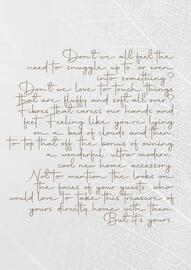 Don't we all feel the
need to snuggle up to or even
into something?
Don't we love to touch things
that are fluffy and soft all over?
Fibres that caress our hands and
feet. Feeling like you're lying
on a bed of clouds and then,
to top that off, the bonus of owning
a wonderful, ultra-modern,
cool new home accessory.
Not to mention the looks on
the faces of your guests who
would love to take this treasure of
yours directly home with them.
But it's yours.